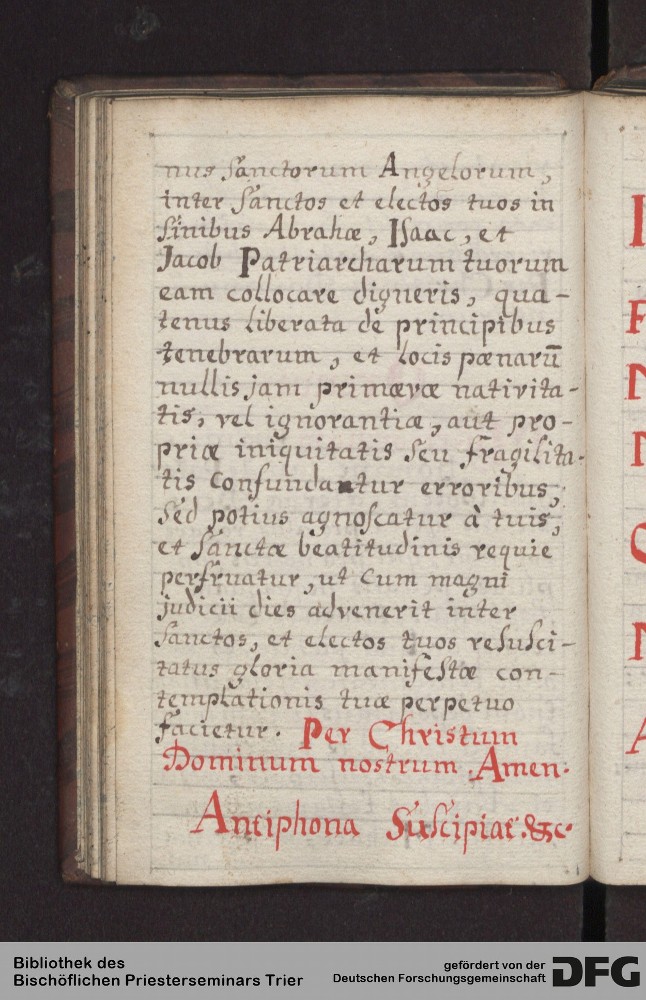 nus Sanctorum Angelorum,
inter Sanctos et electos tuos in
sinibus Abrahæ, Isaac, et
Jacob Patriarcharum tuorum
eam collocare digneris, qua-
tenus liberata de principibus
tenebrarum, et locis pænarū
nullis jam primævæ nativita-
tis, vel ignorantiæ, aut pro-
priæ iniquitatis seu fragilita-
tis confundantur erroribus,
sed potius agnoscatur à tuis,
et Sanctæ beatitudinis requie
perfruatur, ut cum magni
judicii dies advenerit inter
Sanctos, et electos tuos resusci-
tatus gloria manifestæ con-
templationis tuæ perpetuo
facietur. Per Christum
Dominum nostrum. Amen.
Antiphona Suscipiat &c
Bibliothek des
Bischöflichen Priesterseminars Trier
gefördert von der
Deutschen Forschungsgemeinschaft
DFG